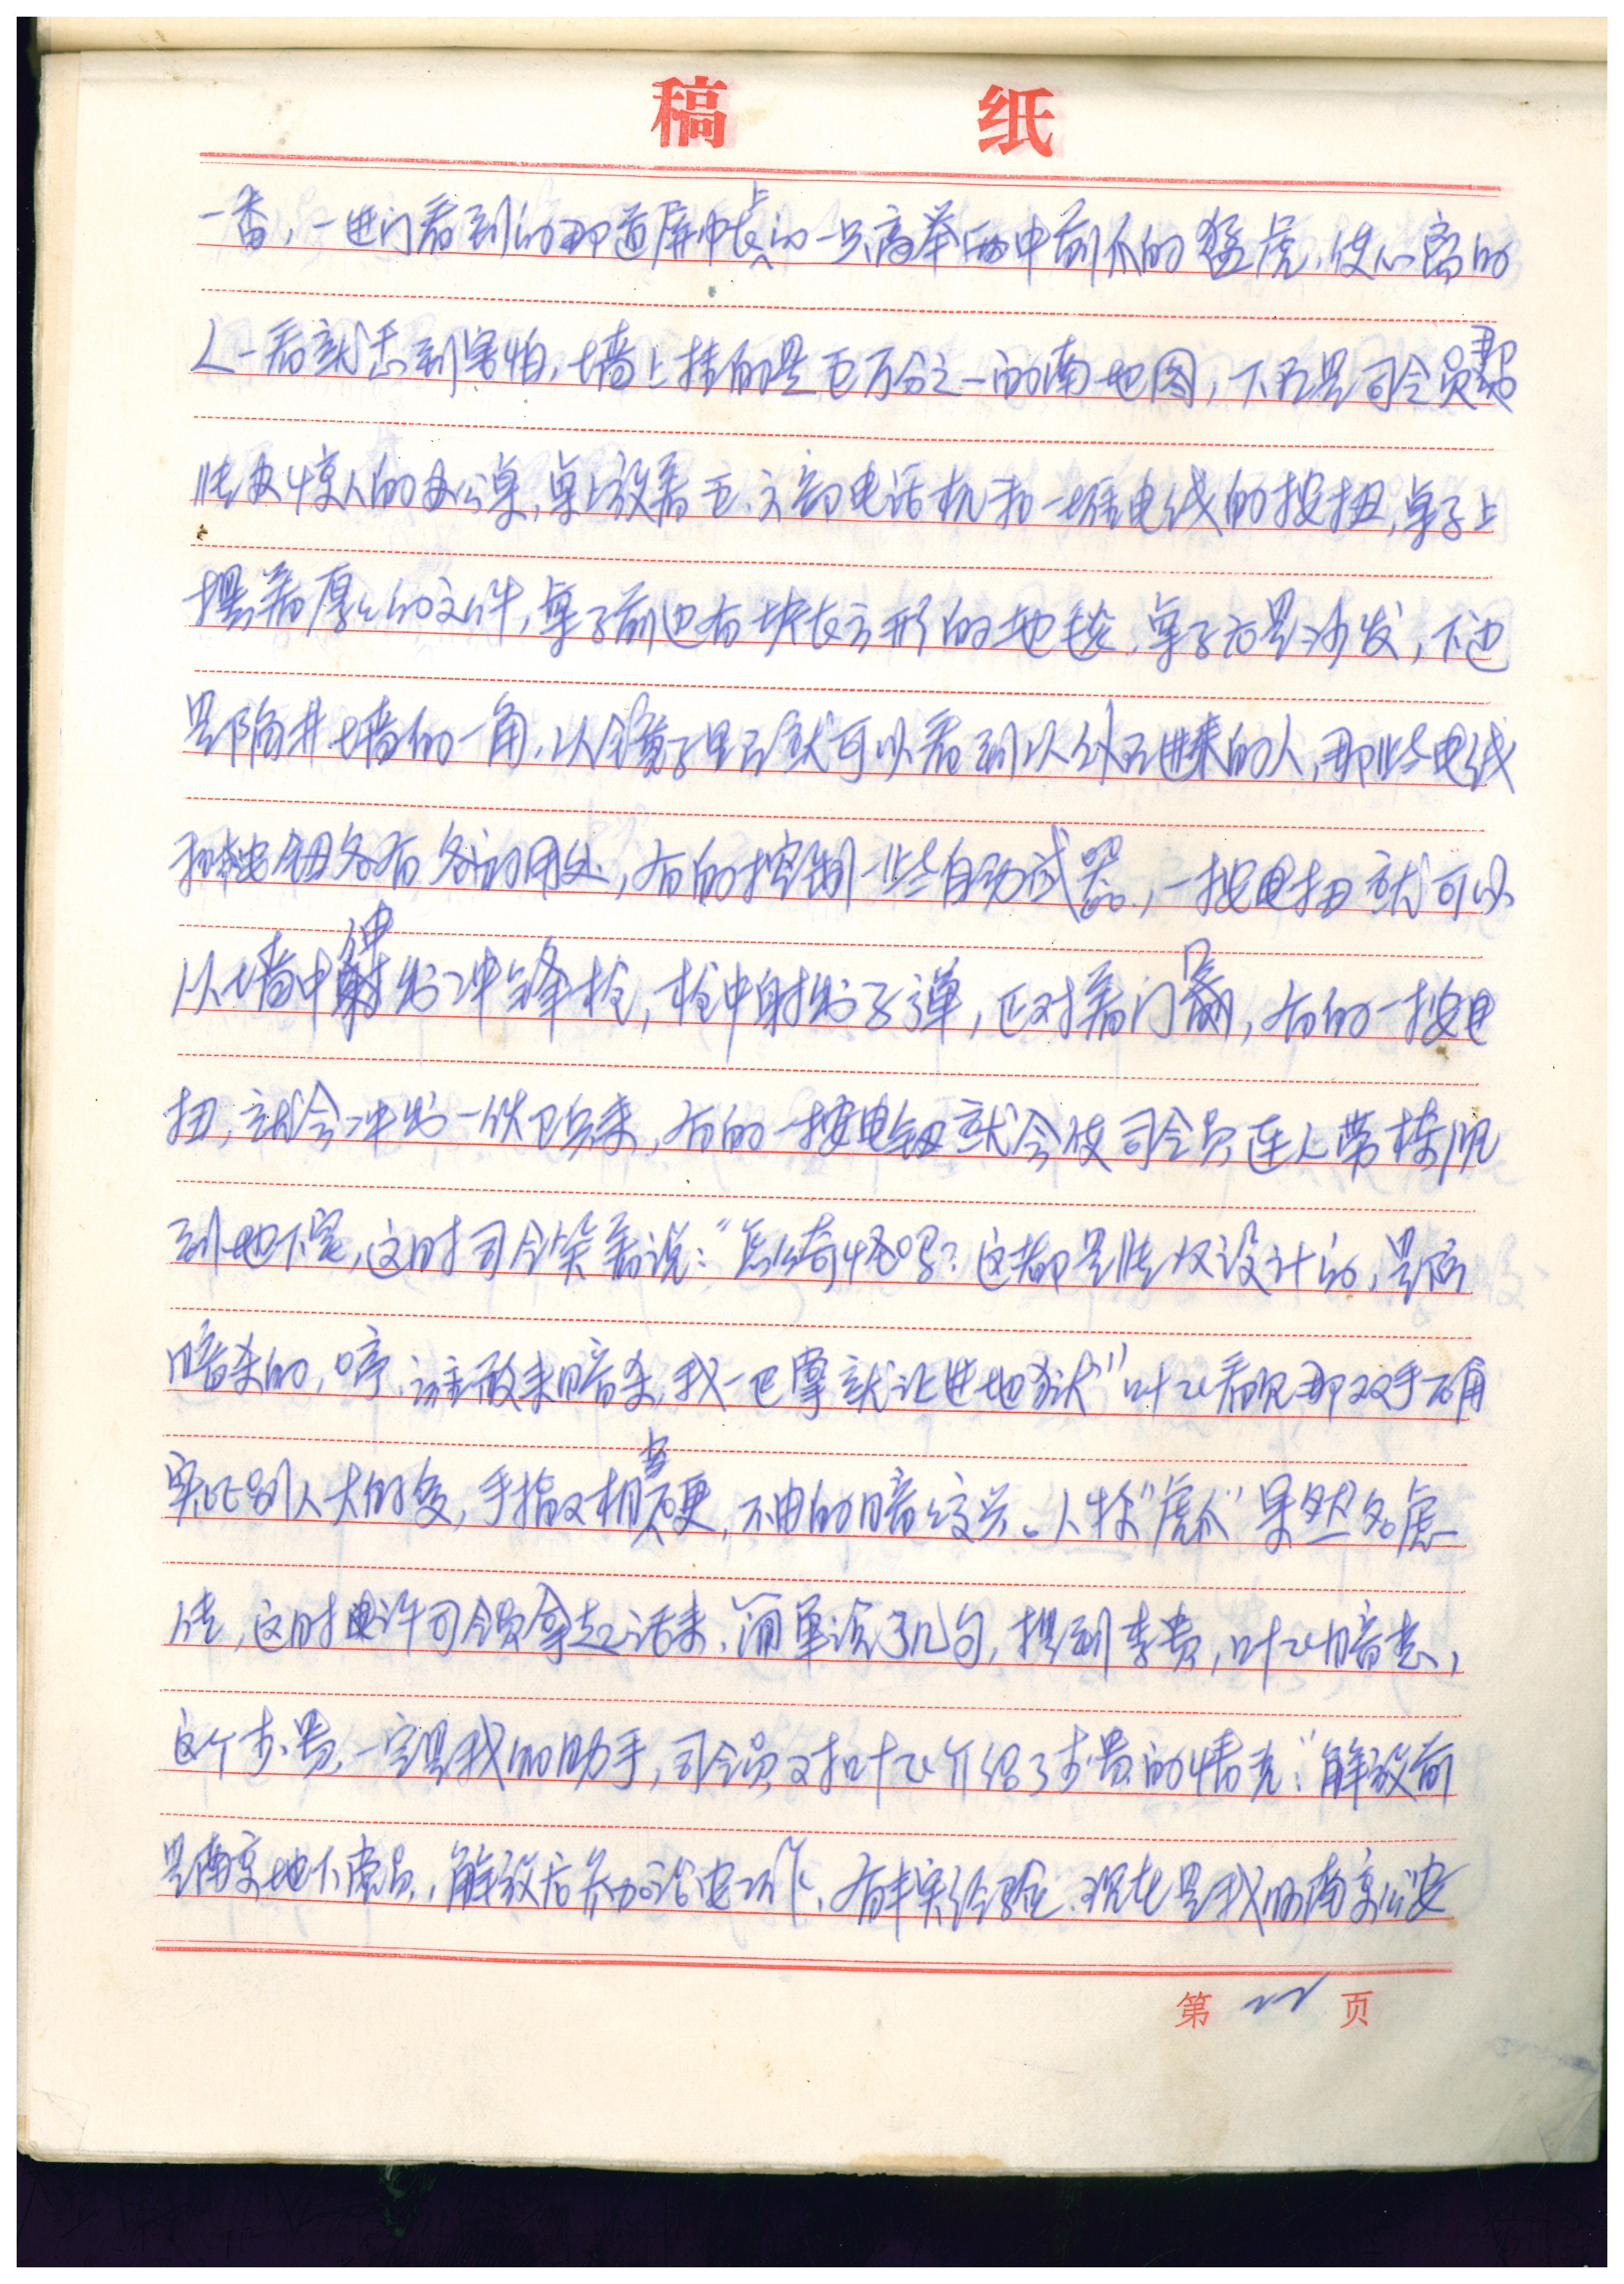 稿 纸
一番,一进门看到的那道屏帐上的一只高举两中前爪的猛虎,使心虚的
人一看就感到害怕,墙上挂的是百万分之一的南地图,下面是司令员那
张大惊人的办公桌,桌上放着五、六部电话机和一堆电线的按扭,桌子上
摆着厚厚的文件,桌子前边有块长方形的地毯,桌子右是沙发,下边
是陷井墙的一角,从镜子里面就可以看到从外面进来的人,那些电线
和电钮各有各的用处,有的控制一些自动武器,一按电扭就可以
从墙中伸出冲锋枪,枪中射出子弹,正对着门口,有的一按电
扭,就会冲出一伙卫兵来,有的一按电钮就会使司令员连人带椅
到地下室,这时司令笑着说:“怎么奇怪吗?这都是张仪设计的,是防
暗杀的,哼,谁敢来暗杀,我一巴掌就让进地狱”叶飞看见那双手确
实比别人大的多,手指又相当硬,不由的暗暗交关。人称“虎爪”果然名虚
传,这时许司令员拿起话来,简单说了几句,提到李贵,叶飞暗想,
这个李贵,一定是我的助手,司令员又对叶飞介绍了李贵的情况:“解放前
是南京地下党员,解放后参加治安工作,有丰实经验,现在是我们南京公安
第 22 页